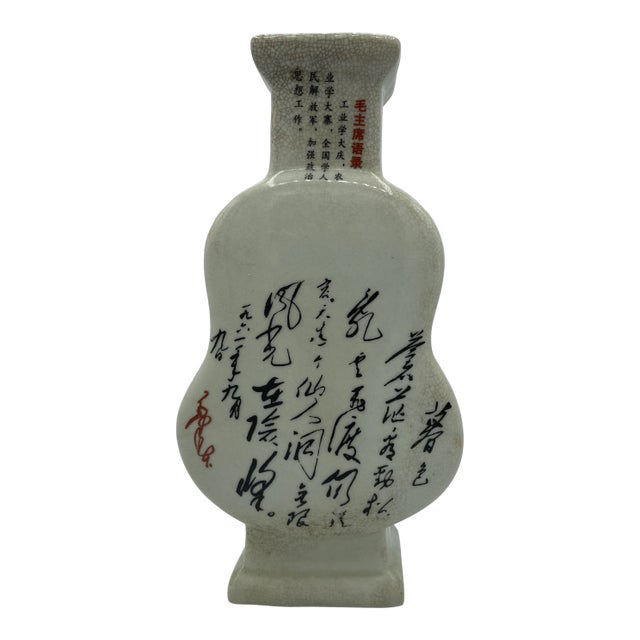 毛主席语录
工业学大庆，农
业学大寨，全国学人
民解放军，加强政治
思想工作。
暮色
苍茫看劲松
乱云飞渡仍从
容。天生一个仙人洞无限
风光在险峰。
一九六一年九月
九日
毛泽东